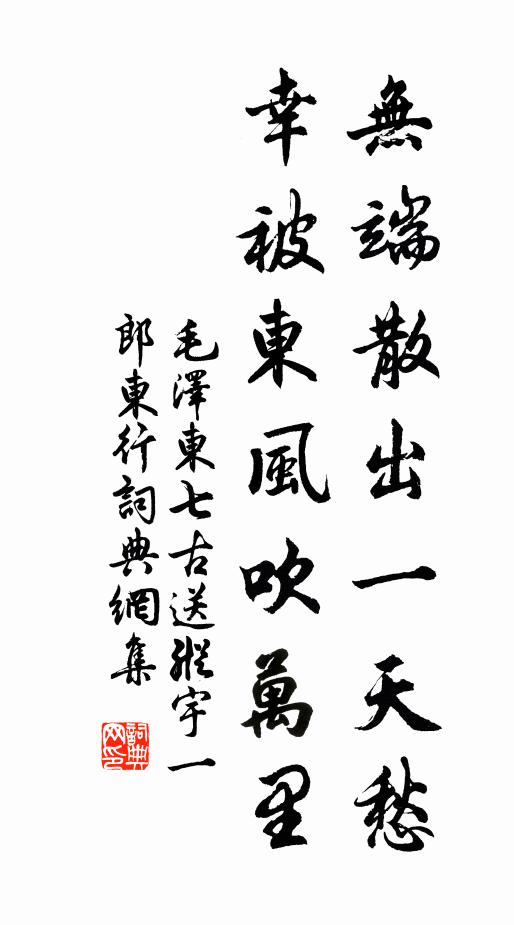 無端散出一天愁
幸被東風吹萬里
毛澤東七古送縱宇一
郎東行詞典網集
詞典网印